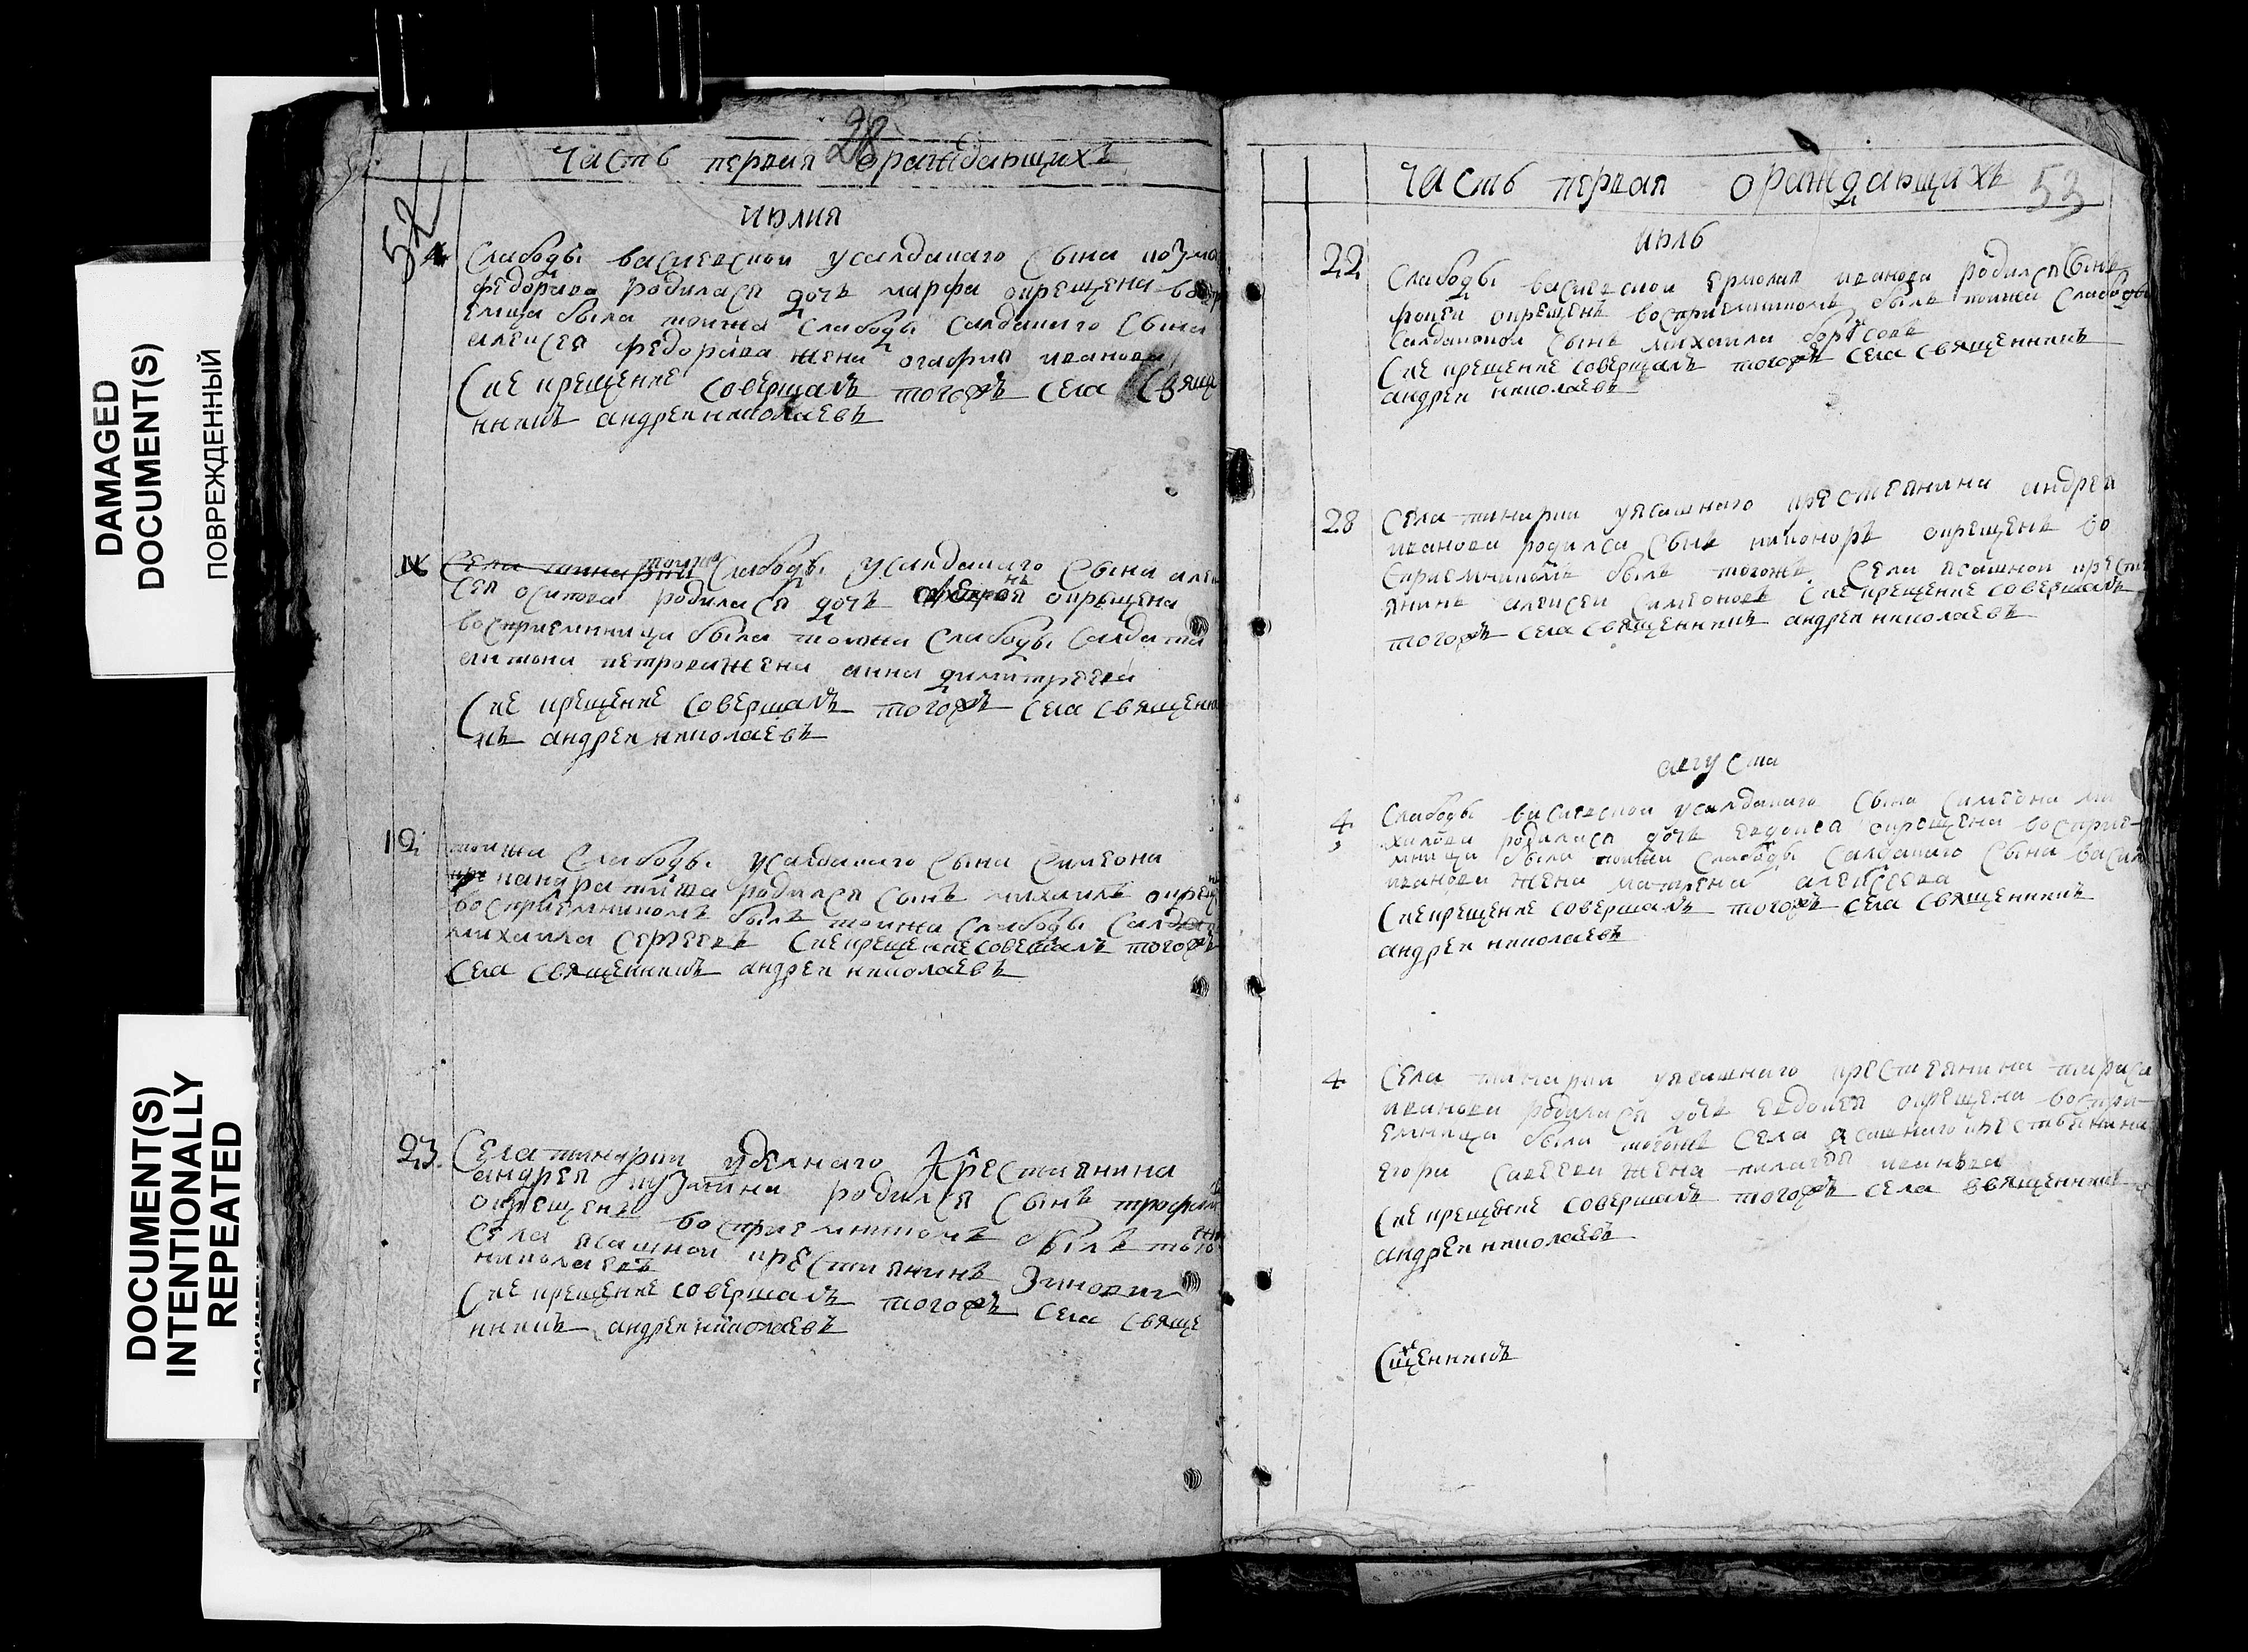 DAMAGED
DOCUMENT(S)
ПОВРЕЖДЕННЫЙ
DOCUMENT(S)
INTENTIONALLY
REPEATED
28
52
часть первая о раждающихъ
июлия
Слабоды васиевской усалдацкаго сына козма
федорава родилася дочь марфа окрещена воспр
емница была тоижа слабоды салдацкаго сына
алексея федорава жена огафия иванова
Сие крещение совершалъ тогожъ села свяще
нникъ андреи николаевъ
16 Села тинарки тоижа слабоды усалдацкаго сына алек
сея осипова родилася дочь окрещена
восприемница была тоижа слабоды салдата
антона петрова жена анна димитреева
Сие крещение совершалъ тогожъ села священни
къ андреи николаевъ
19 тоижа слабоды усалдацкаго сына симеона
панкратиева родился сынъ михаилъ окрещенъ
восприемникомъ былъ тоижа слабоды салдат
михаила сергеевъ Сие крещение совершалъ тогожъ
села священникъ андреи николаевъ
23. Села тинарки уделнаго крестиянина
андрея кузмина родился сынъ трофим
окрещенъ восприемникомъ былъ тогожъ
села ясашнои крестиянинъ Зиновии
николаевъ
Сие крещение совершалъ тогожъ села свяще
нникъ андреи николаевъ
часть первая о раждающихъ 53
июль
22 Слабоды васиевской ермолая иванова родился сынъ
фокеи окрещенъ восприемникомъ былъ тоижа слабоды
салдацкои сынъ михаила борисовъ
Сие крещение совершалъ тогожъ села священникъ
андреи николаевъ
28 Села тинарки уясашнаго крестиянина андрея
иванова родился сынъ никаноръ окрещенъ во
сприемникомъ былъ тогожъ села ясашнои крести
янинъ алексеи симеоновъ Сие крещение совершалъ
тогожъ села священникъ андреи николаевъ
августа
4 Слабоды васиевской усалдацкаго сына симеона ми
хаилова родилася дочь евдокея окрещена восприе
мница была тоижа слабоды салдацкаго сына васил
иванова жена матрена алексеева
Сие крещение совершалъ тогожъ села священникъ
андреи николаевъ
4 Села тинарки уясашнаго крестиянина тараса
иванова родилася дочь евдокея окрещена воспри
емница была тогожъ села ясашнаго крестьянина
егора савеева жена пелагея иванова
Сие крещение совершалъ тогожъ села священникъ
андреи николаевъ
Сщенникъ